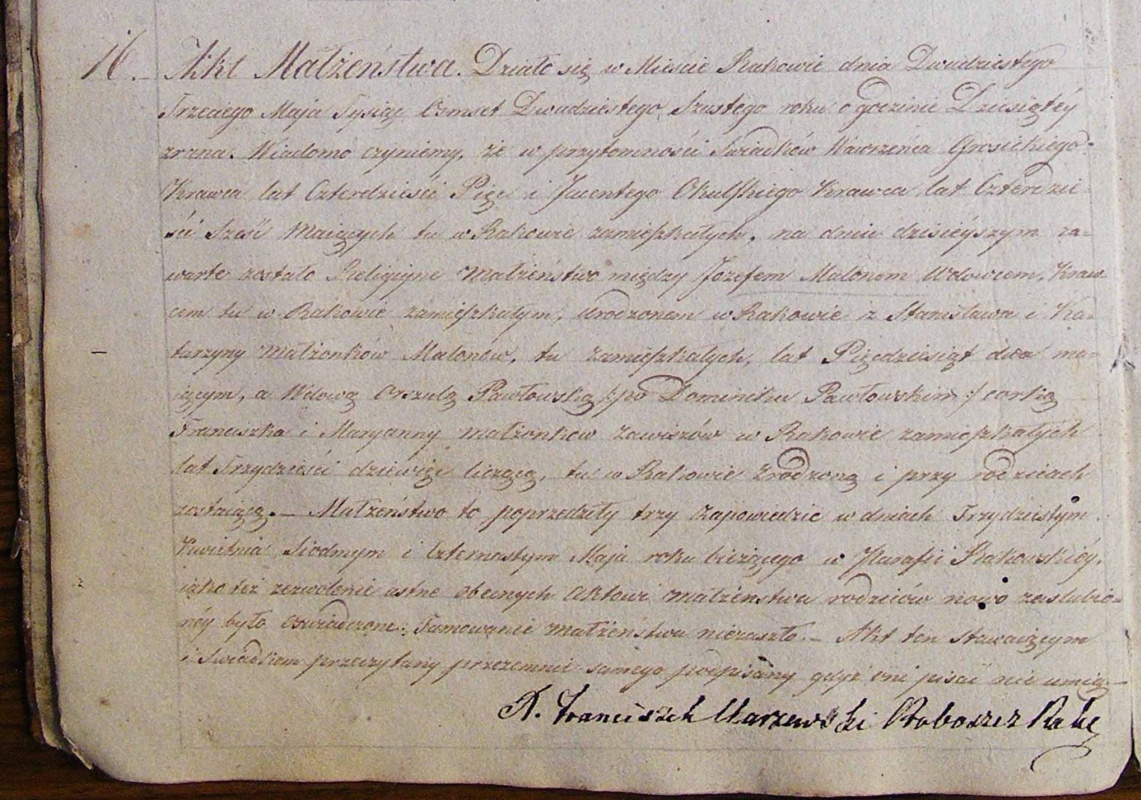 16. Akt Małżeństwa. Działo się w Mieście Rakowie dnia Dwudziestego
Trzeciego Maja Tysiąc Osmset Dwudziestego Szustego roku o godzinie Dziesiątéy
zrana. Wiadomo czyniemy, że w przytomności Swiadków Wawrzeńca Grosickiego
Krawca lat Czterdzieści Pięć i Jacentego Okulskiego Krawca lat Czterdzie-
ści Sześć Maiących tu w Rakowie zamieszkałych, na dniu dzisieyszym za-
warte zostało Religijne Małżeństwo między Józefem Malonem Wdowcem, Kraw-
cem tu w Rakowie zamieszkałym, Urodzonem w Rakowie z Stanisława i Ka-
tarzyny Małżonków Malonów, tu zamieszkałych, lat Pięćdziesiąt dwa ma-
iącym, a Wdową Orszulą Pawłowską /:po Dominiku Pawłowskim:/ corką
Franciszka i Maryanny małżonków Zawiszów w Rakowie zamieszkałych
lat Trzydzieści dziewięć liczącą, tu w Rakowie zrodzoną i przy rodzicach
zostaiącą. — Małżeństwo to poprzedziły trzy zapowiedzie w dniach Trzydziestym
Kwietnia Siodmym i Czternastym Maja roku bieżącego w Parafii Rakowskiéy,
iako też zezwolenie ustne obecnych Aktowi małżeństwa rodziców nowo zaslubio-
néy było oswiadczone. Tamowanie małżeństwa niezaszło. — Akt ten stawaiącym
i Swiadkom przeczytany przezemnie samego podpisany gdyż oni pisać nie umią —
X. Franciszek Proboszcz